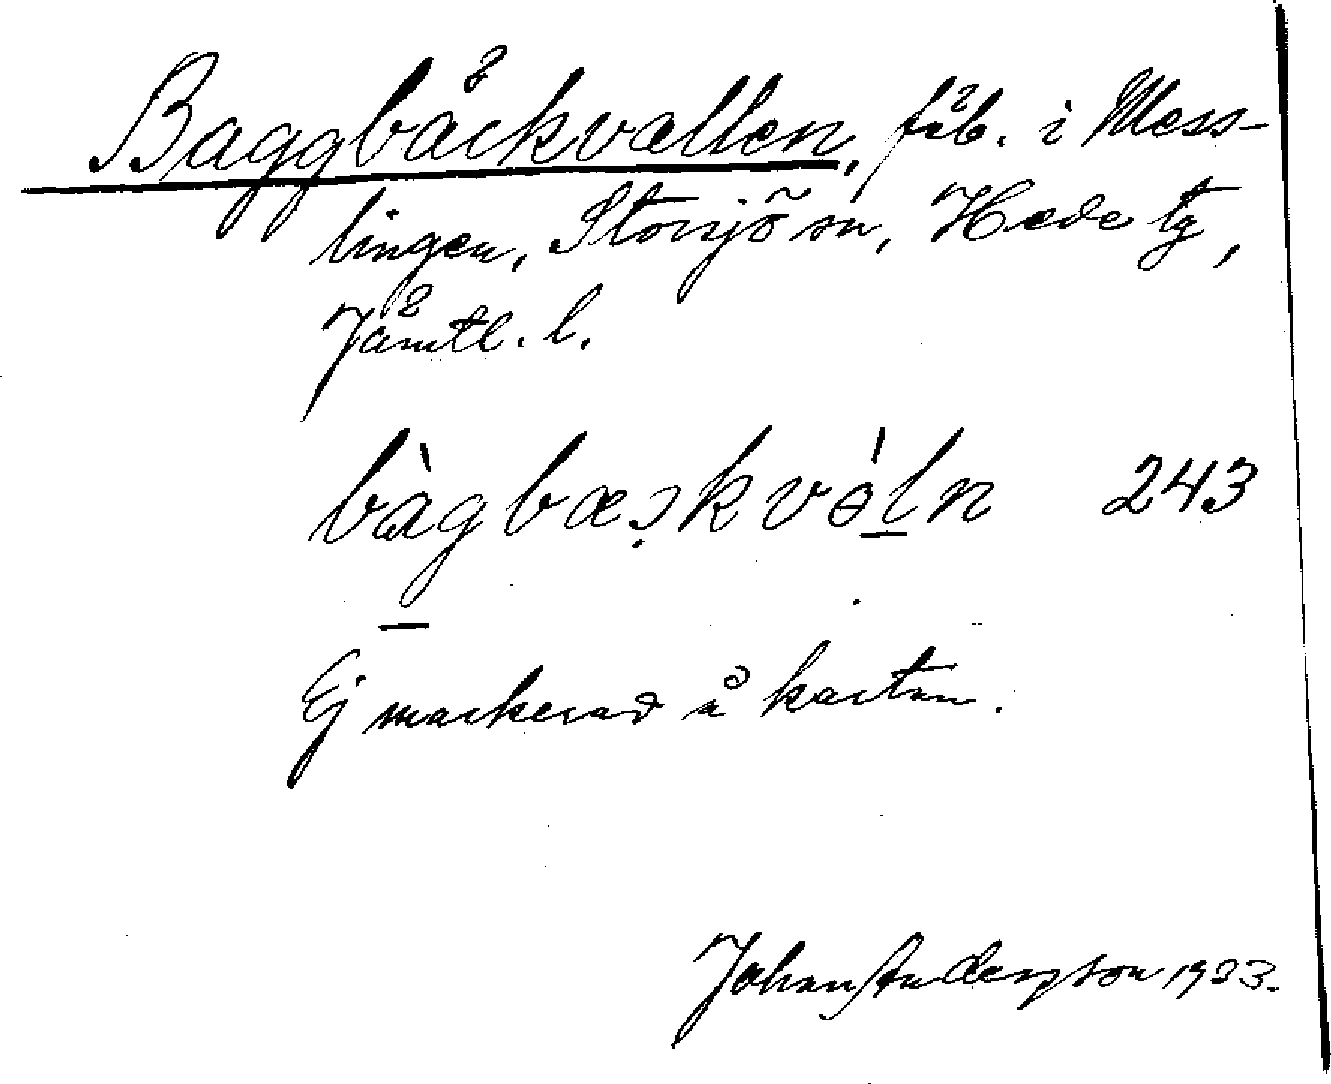 Baggbäckvallen, fäb. i Mess-
lingen, Storsjö sn, Hede tg,
Jämtl. l.
bàgbæskvə́ln 243
Ej markerad å kartan.
Johan Andersson 1933.